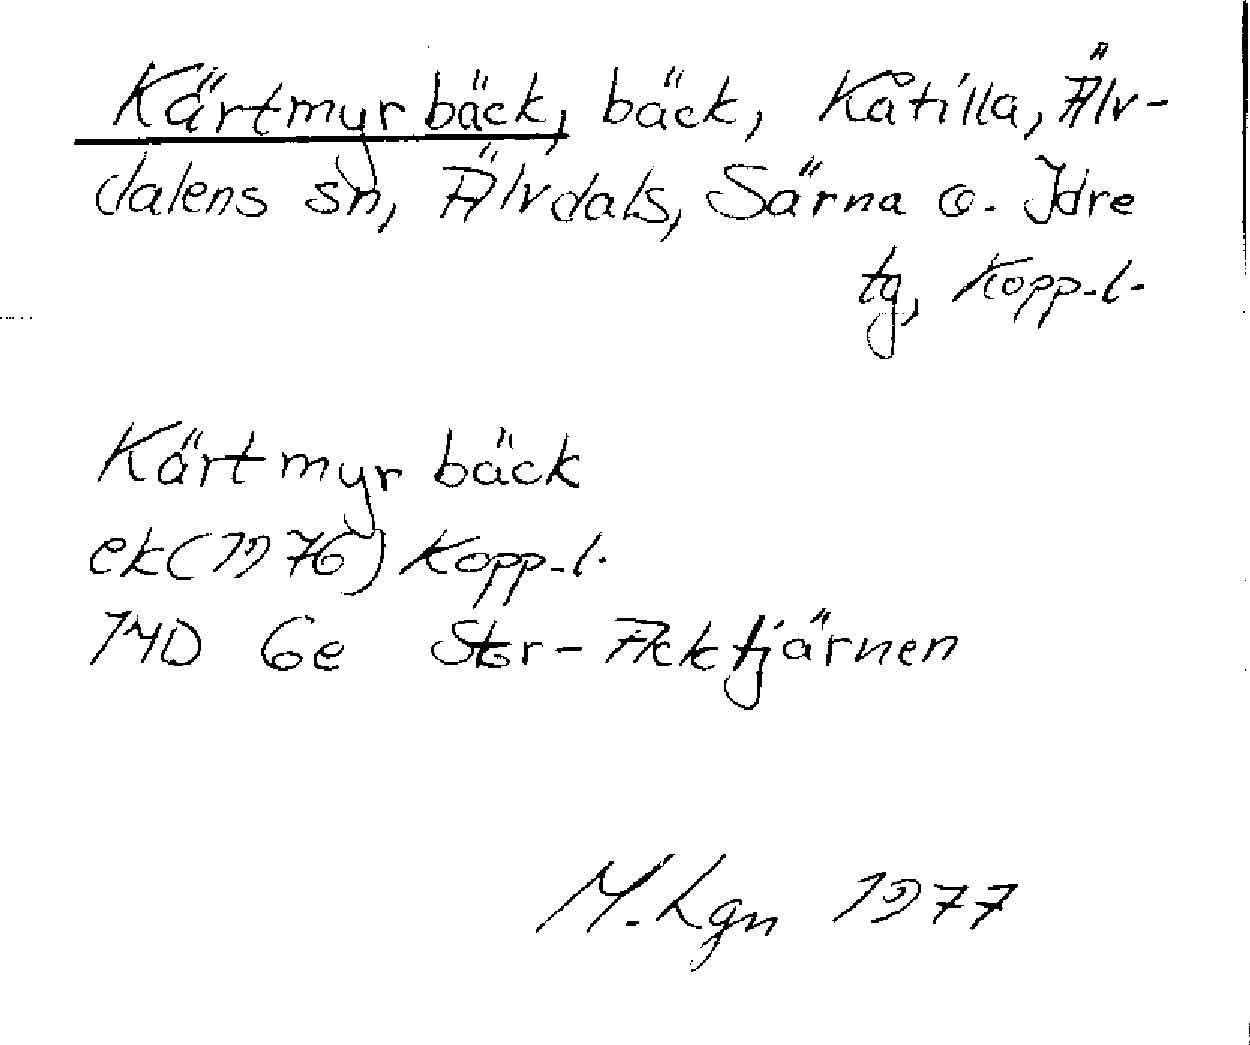 Kärtmyrbäck, bäck, Kåtilla, Älv-
dalens sn, Älvdals, Särna o. Idre
tg, Kopp.l.
Kärtmyrbäck
ek(1976) Kopp.l.
14D 6e Stor-Acktjärnen
M.Lgn 1977